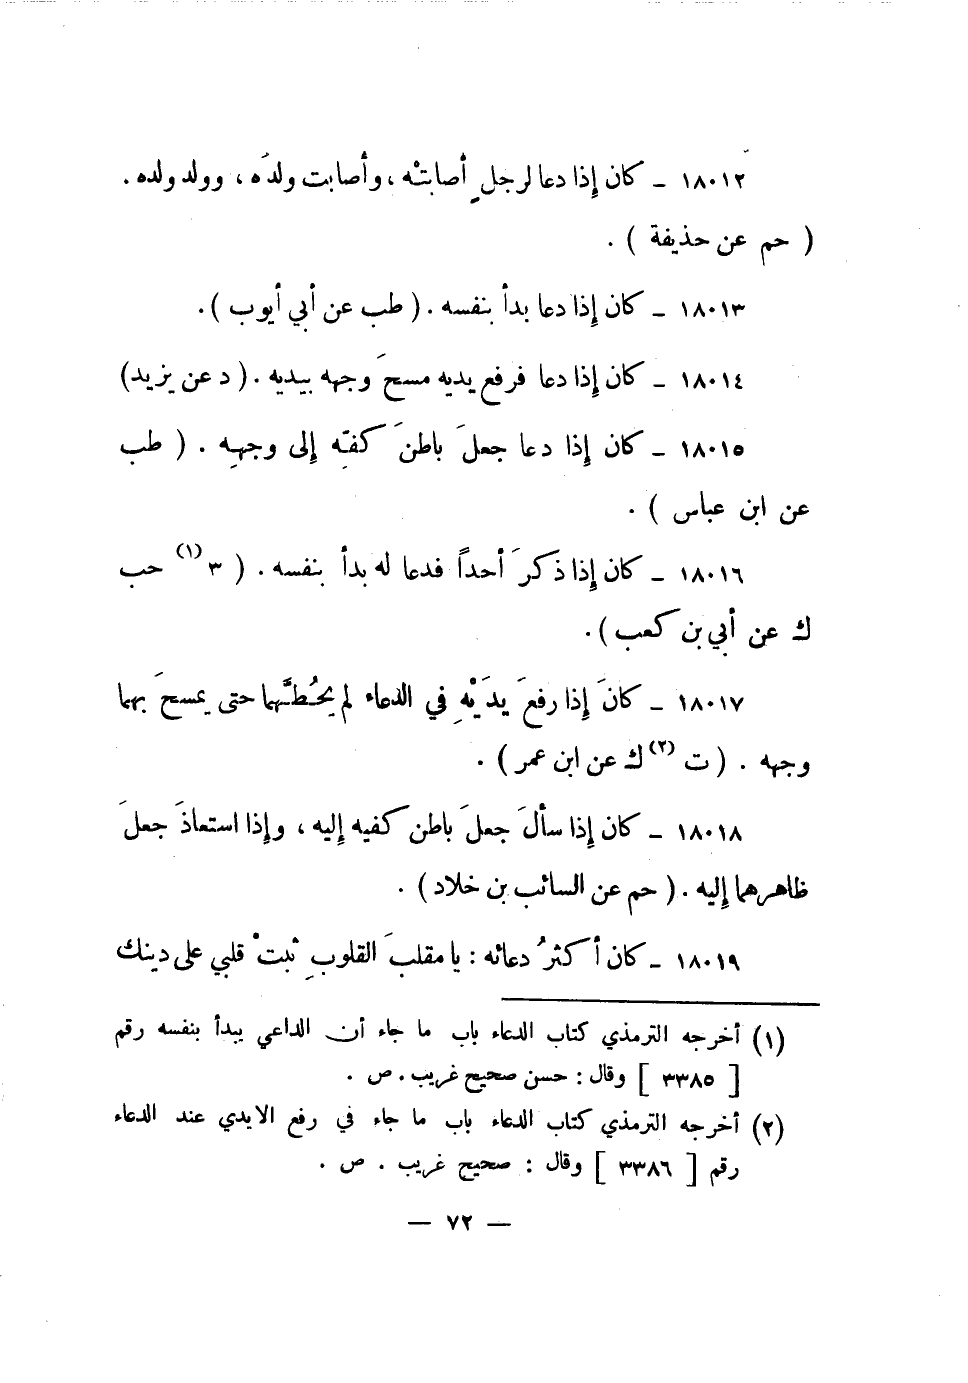 ١٨٠١٢ ــ كان إذا دعا لرجلٍ أصابتْه ، وأصابت ولدَه ، وولد ولده .
( حم عن حذيفة ) .
١٨٠١٣ ــ كان إذا دعا بدأ بنفسه . ( طب عن أبي أيوب ) .
١٨٠١٤ ــ كان إذا دعا فرفع يديه مسحَ وجهه بيديه . ( د عن يزيد )
١٨٠١٥ ــ كان إذا دعا جعلَ باطنَ كفِّه إلى وجهِه . ( طب
عن ابن عباس ) .
١٨٠١٦ ــ كان إذا ذكرَ أحداً فدعا له بدأ بنفسه . ( ٣ (١) حب
ك عن أبي بن كعب ) .
١٨٠١٧ ــ كانَ إذا رفعَ يدَيْهِ في الدعاء لم يحُطَّهما حتى يمسحَ بهما
وجهه . ( ت (٢) ك عن ابن عمر ) .
١٨٠١٨ ــ كان إذا سألَ جعلَ باطن كفيه إليه ، وإذا استعاذَ جعلَ
ظاهرهما إليه . ( حم عن السائب بن خلاد ) .
١٨٠١٩ ــ كان أكثرُ دعائه : يا مقلبَ القلوبِ ثبتْ قلبي على دينك
(١) أخرجه الترمذي كتاب الدعاء باب ما جاء أن الداعي يبدأ بنفسه رقم
[ ٣٣٨٥ ] وقال : حسن صحيح غريب . ص .
(٢) أخرجه الترمذي كتاب الدعاء باب ما جاء في رفع الايدي عند الدعاء
رقم [ ٣٣٨٦ ] وقال : صحيح غريب . ص .
— ٧٢ —